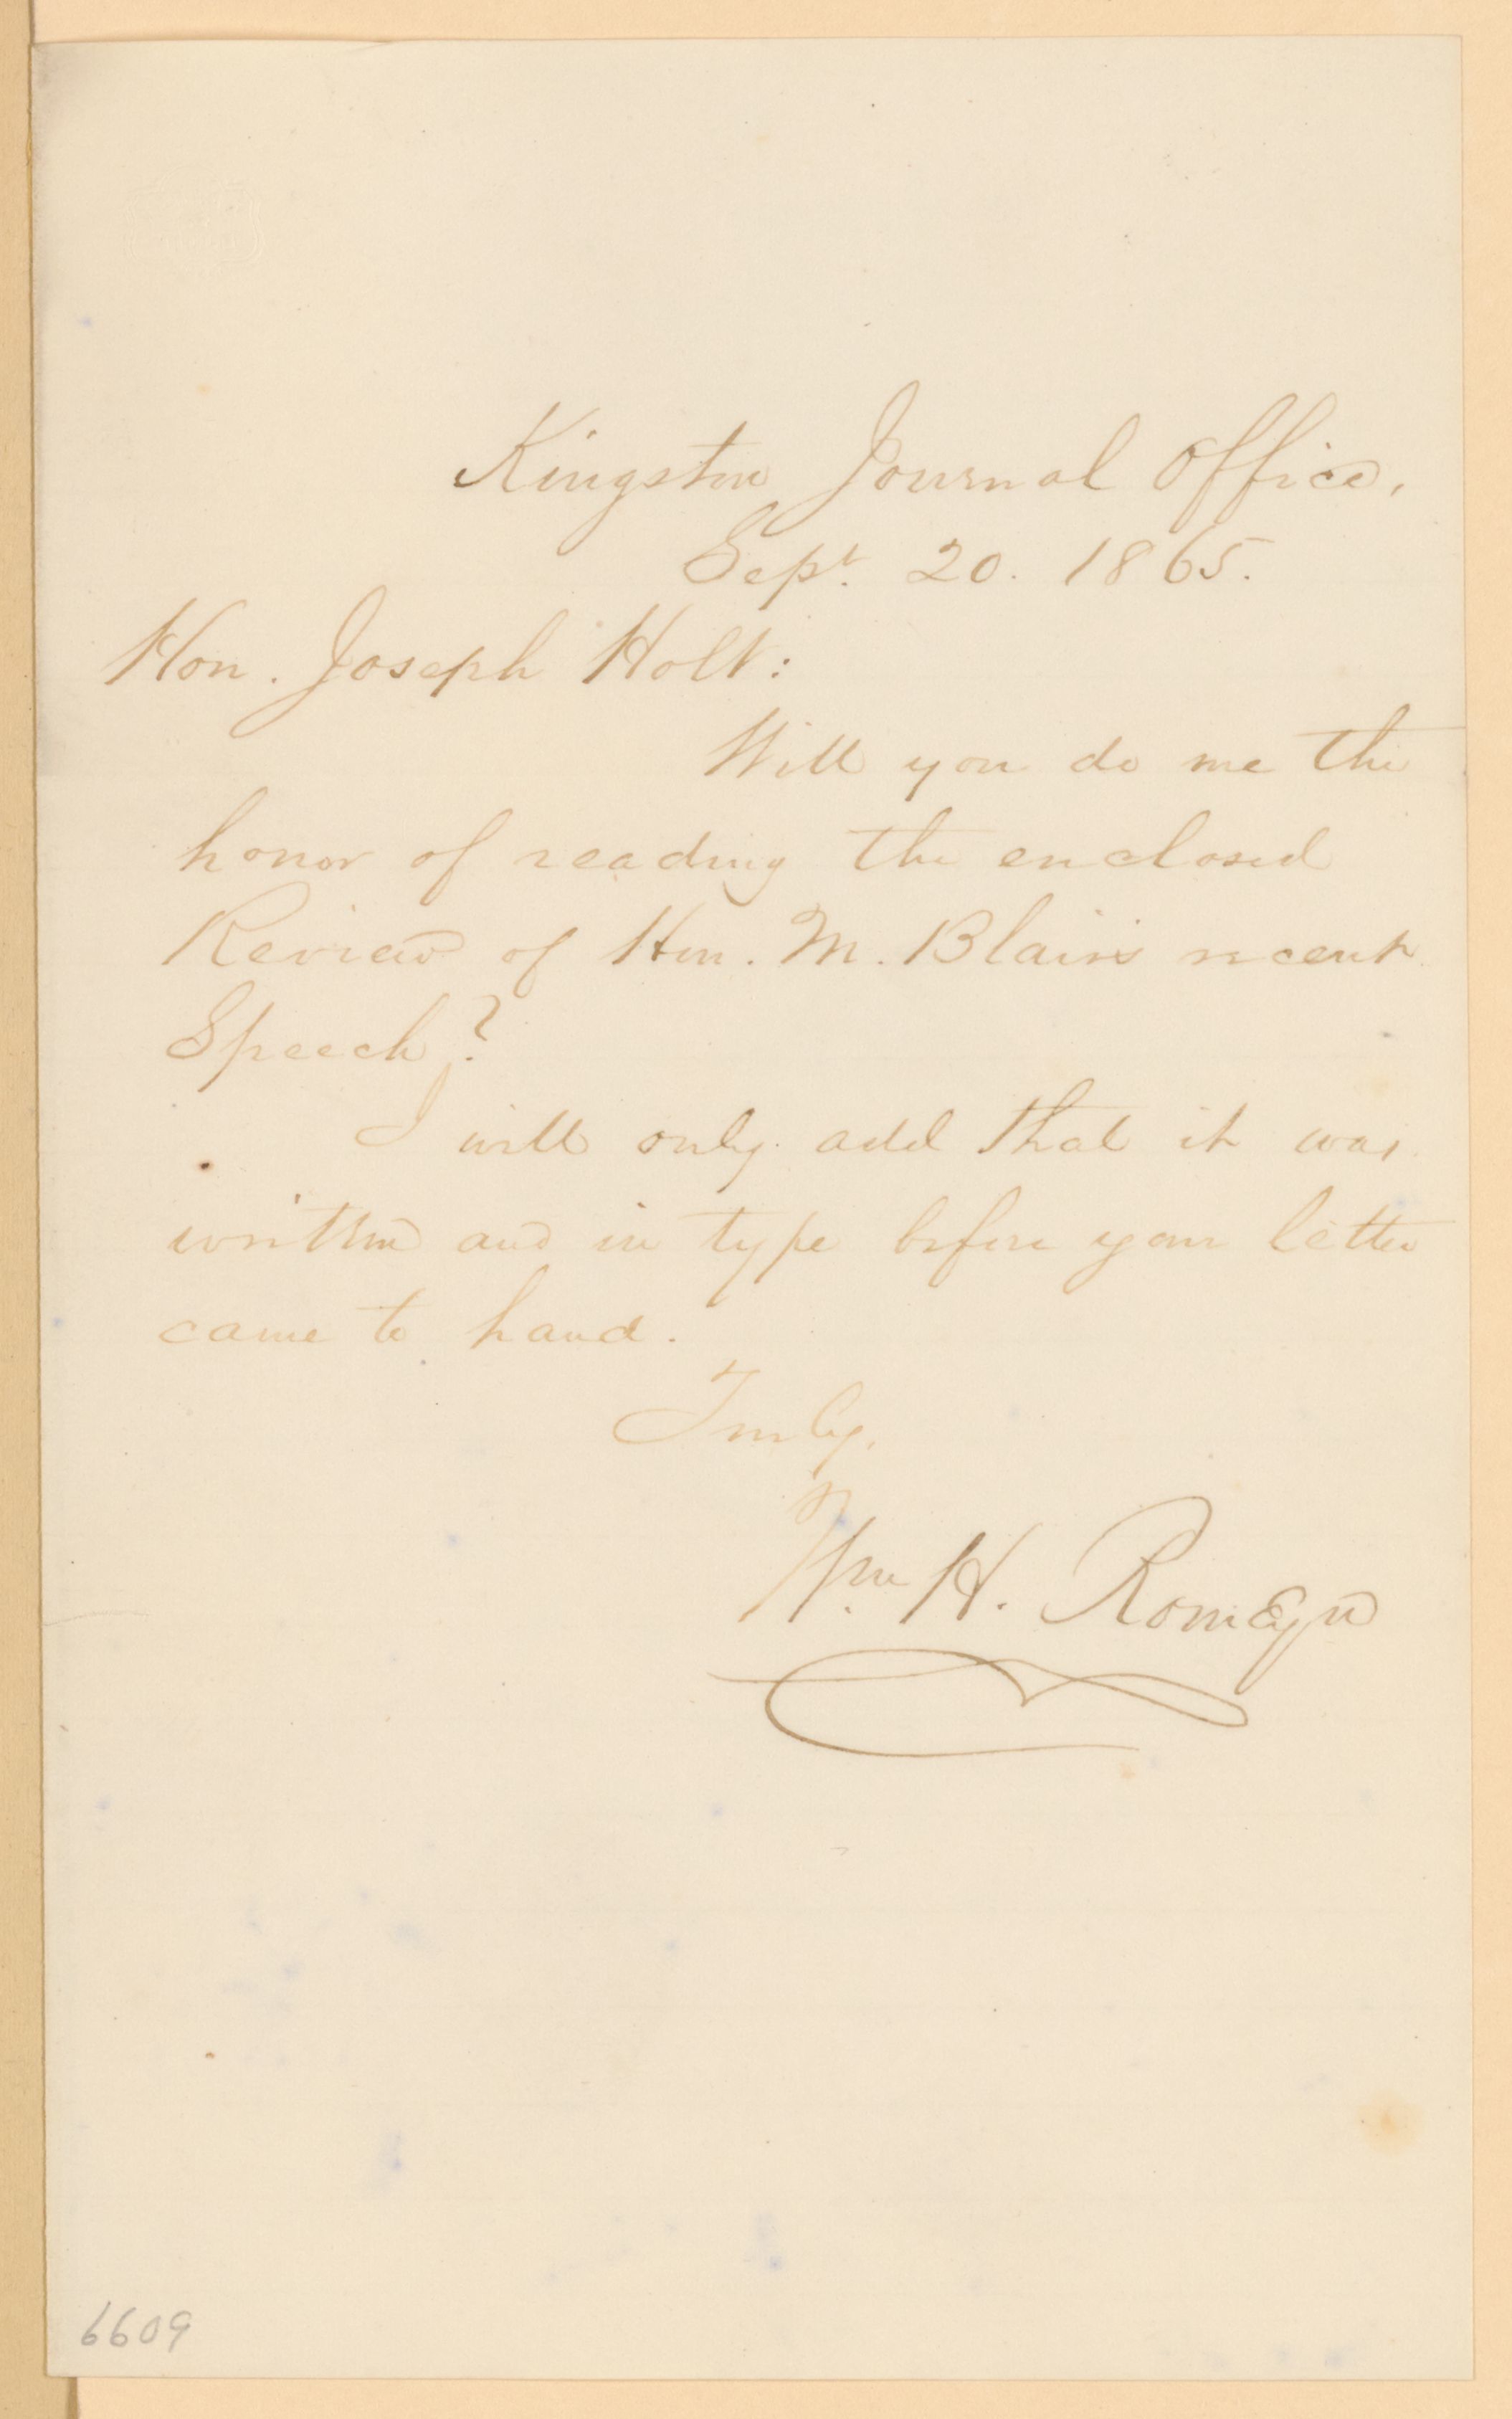 Kingston Journal Office,
Sept. 20. 1865.
Hon. Joseph Holt:
Will you do me the
honor of reading the enclosed
Review of Hon. M. Blair's recent
Speech?
I will only add that it was
written and in type before your letter
came to hand.
Truly,
Wm. H. Romeyn
6609